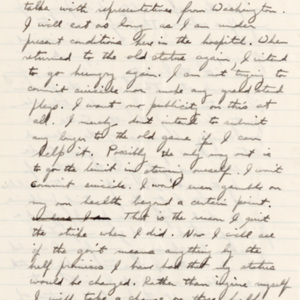 talk with representatives from Washington.
I will eat as long as I am under
present conditions here in the hospital. When
returned to the old status again, I intend
to go hungry again. I am not trying to
commit suicide nor make any grand stand
plays. I want no publicity on this at
all. I merely dont intend to submit
any longer to the old game if I can
help it. Possibly the only way out is
to go the limit in starving myself. I won't
commit suicide. I won't even gamble on
my own health beyond a certain point.
This is the reason I quit
the strike when I did. Now I will see
if the govt means anything by the
half promises I have had that my status
would be changed. Rather than injure myself
I will take a chance on